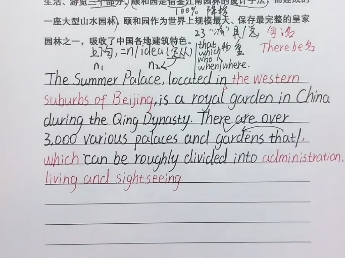 生活、游览三个部分。颐和园是借鉴江南园林的设计手法而建成的
一座大型山水园林，颐和园作为世界上规模最大、保存最完整的皇家
园林之一，吸收了中国各地建筑特色。
100% 降格
23 "读"
There be句
上句, =n/idea
n₁ n₂
that
which
who
when/where.
The Summer Palace, located in the western
suburbs of Beijing, is a royal garden in China
during the Qing Dynasty. There are over
3,000 various palaces and gardens that/
which can be roughly divided into administration,
living and sightseeing